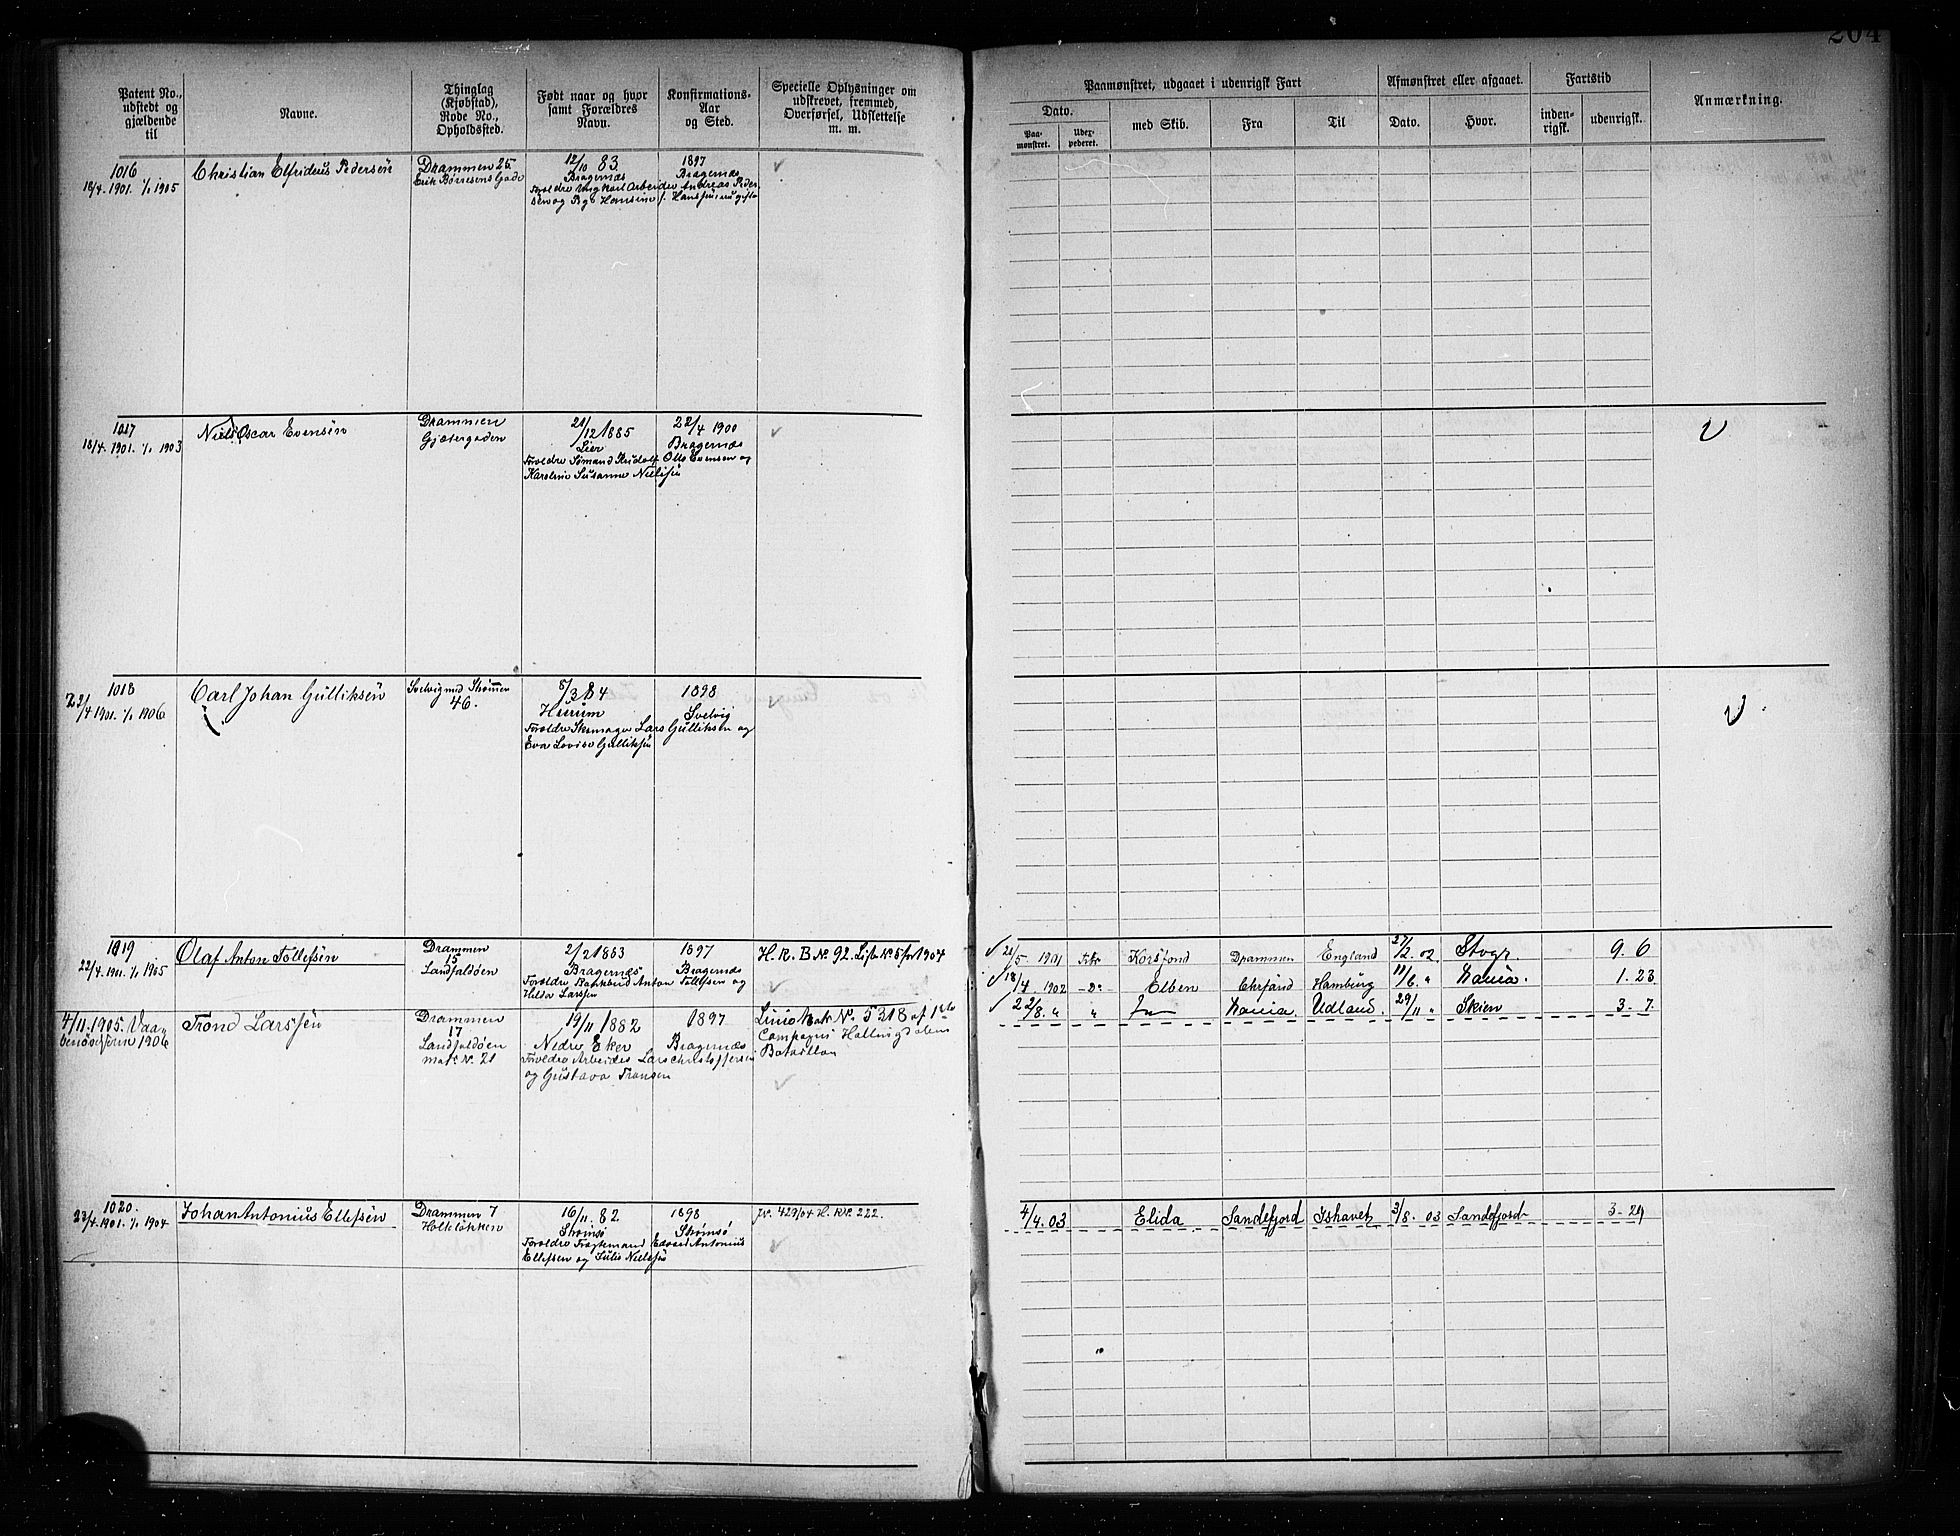 204
Patent No., udstedt og gjældende til
Navne.
Thinglag (Kjøbstad), Rode No., Opholdssted.
Født naar og hvor samt Forældres Navn.
Konfirmations-Aar og Sted.
Specielle Oplysninger om udskrevet, fremmed, Overførsel, Udslettelse m. m.
Paamønstret, udgaaet i udenrigsk Fart
Afmønstret eller afgaaet.
Fartstid
Anmærkning.
Dato.
Paa-mønstret.
med Skib.
Fra
Til
Dato.
Hvor.
inden-rigsk.
udenrigsk.
1016
18/4. 1901. 1/1 1905
Christian Elfriderus Pedersen
Drammen 25
Erik Børresens Gade
12/10 83
Bragernæs
Forældre Ungkarl Arbeider Andreas Peder-
sen og Pige Hansine
1897
Bragernæs
1017
18/4. 1901. 1/1 1903
Niels Oscar Evensen
Drammen
Gjætergaden
21/12 1885
Lier
Forældre Sømand Rudolf Otto Evensen og
Karoline Susanne Nielsen
22/4 1900
Bragernæs
1018
22/4 1901. 1/1 1906
Carl Johan Gulliksen
Svelvig med Strømmen
46.
8/3 84
Hurum
Forældre Skomager Lars Gulliksen og
Eva Lovise Gulliksen
1898
Svelvig
1019
22/4. 1901. 1/1 1905
Olaf Anton Tollefsen
Drammen
15
Landfaldøen
2/2 1883
Bragernæs
Forældre Bankbud Anton Tollefsen og
Hilda Larssen
1897
Bragernæs
H. R. B No 92.
21/5. 1901 Korsfond Drammen England 27/2. 02 9. 6
18/4. 1902 Elben Chrsand Hamburg 11/6 " 1. 23
22/8. " " Udland. 29/11 " Skien 3. 7
4/11. 1905.
1906
Trond Larssen
Drammen
17
Landfaldøen
Mat. No. 21
19/11 1882
Nedre Eker
Forældre Arbeider Lars Christoffersen
og Gustava Transen
1897
Bragernæs
No. 5318 af 1ste
Compagni Hallingdalens
Batallion
1020.
23/4. 1901. 1/1 1904
Johan Antonius Ellefsen
Drammen 7
Holteløkken
16/11. 82
Strømsø
Forældre Edvard Antonius
Ellefsen og Julie Nielsen
1898
Strømsø
Jr. 429/04 H. R. No. 222.
4/4. 03 Elida Sandefjord Ishavet 3/8. 03 Sandefjord 3. 29